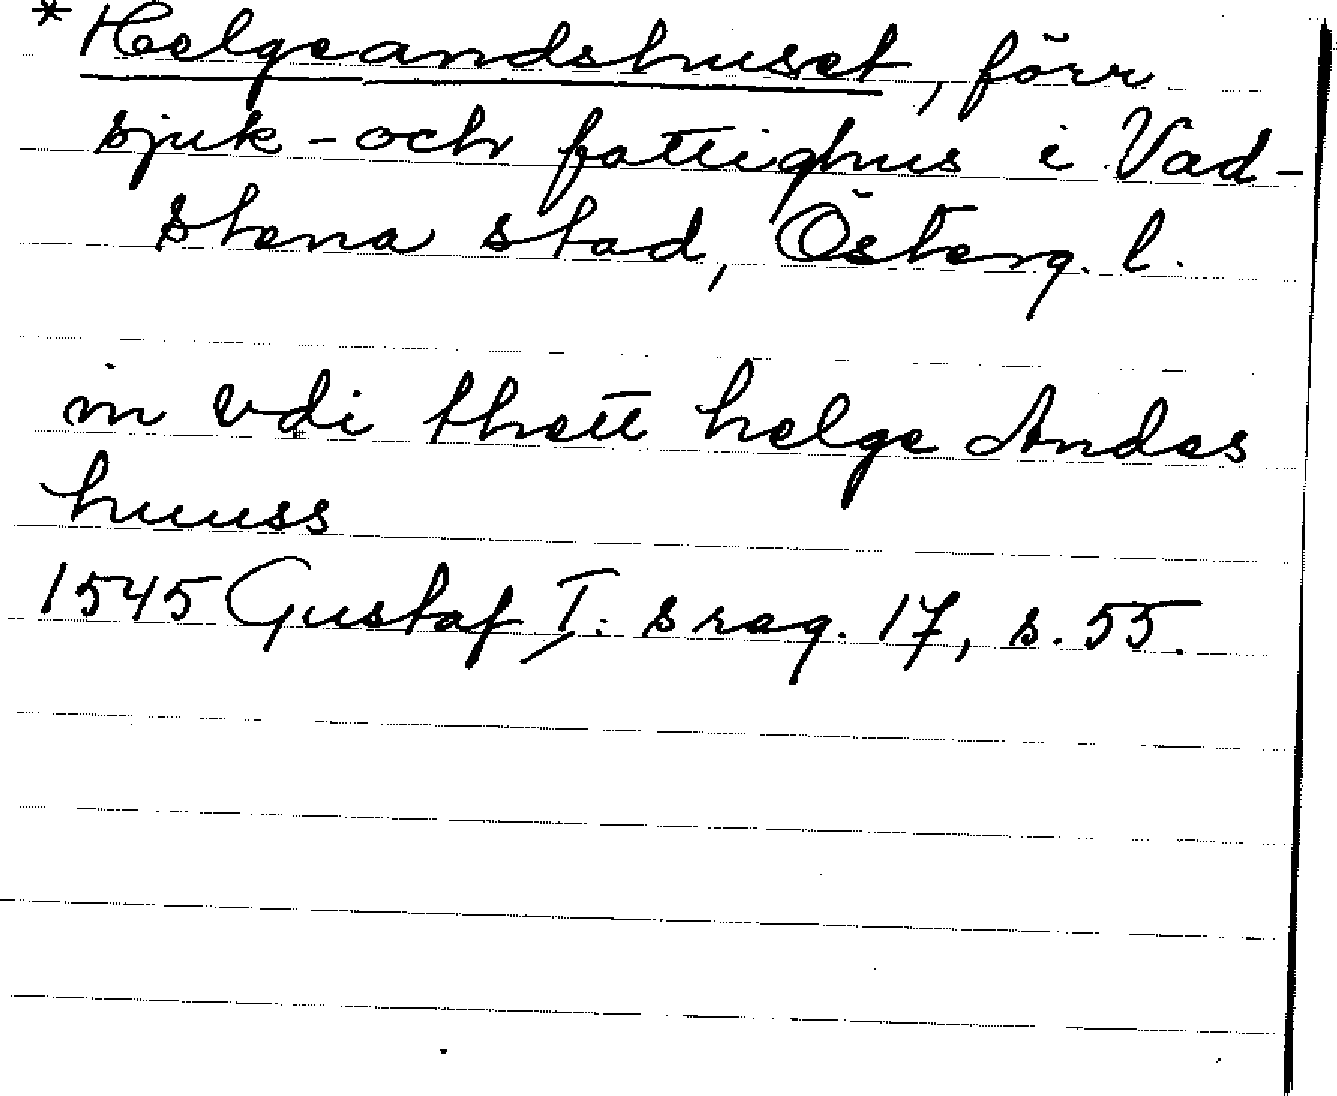 * Helgeandshuset, förr
sjuk- och fattighus i Vad-
stena stad, Österg. l.
in vdi thett helge Andes
huuss
1545 Gustaf I: s reg. 17, s. 55.